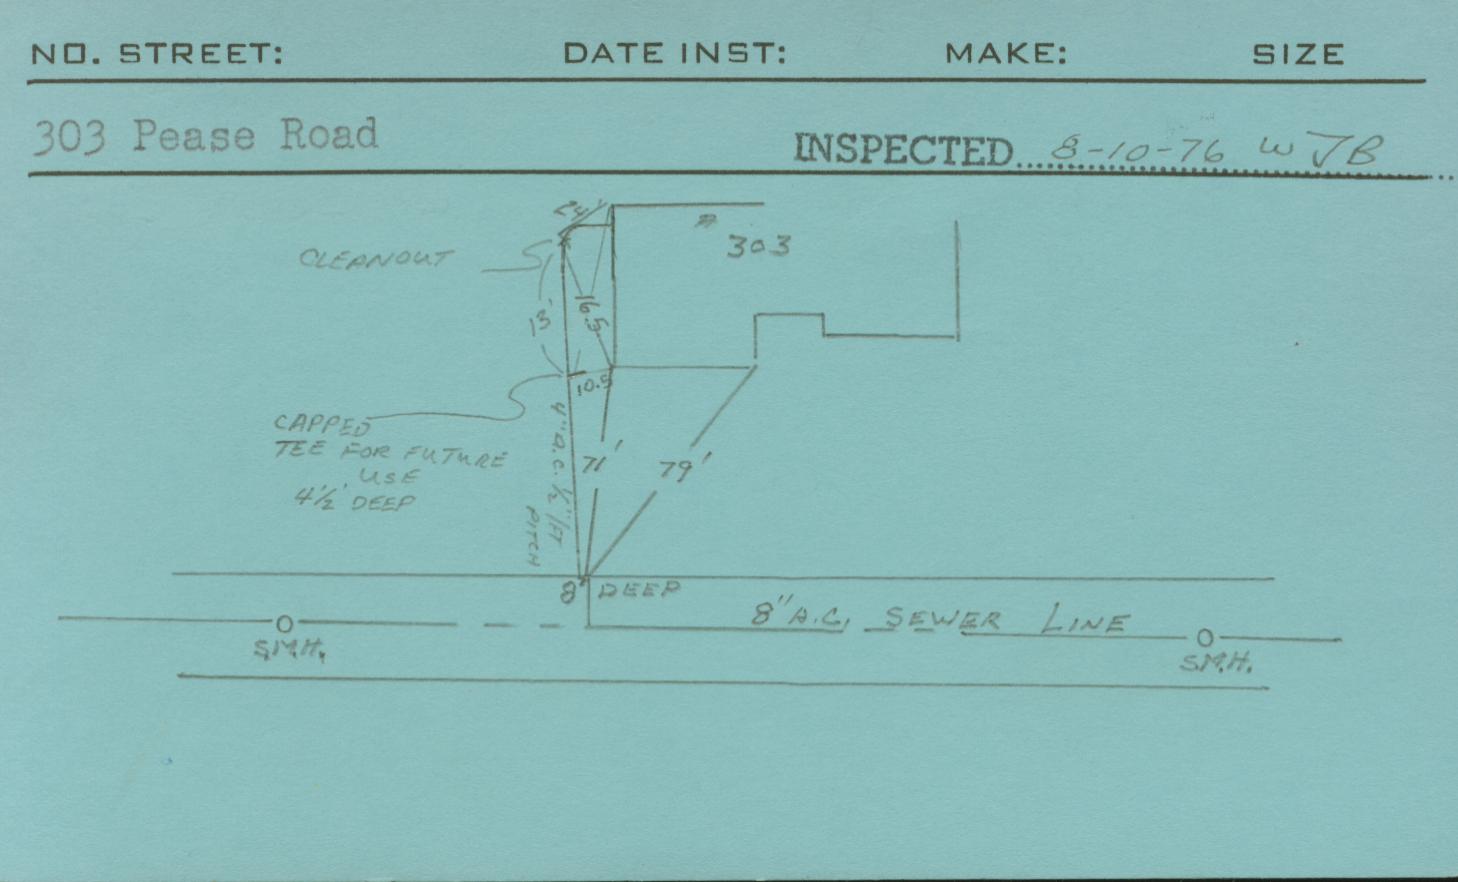 NO. STREET: DATE INST: MAKE: SIZE
303 Pease Road INSPECTED 8-10-76 WJB
24'
# 303
CLEANOUT
16.5
13'
10.5
CAPPED
TEE FOR FUTURE
USE
4½' DEEP
4" A.C. ½"/FT
PITCH
71'
79'
8' DEEP
8" A.C. SEWER LINE
S.M.H.
S.M.H.